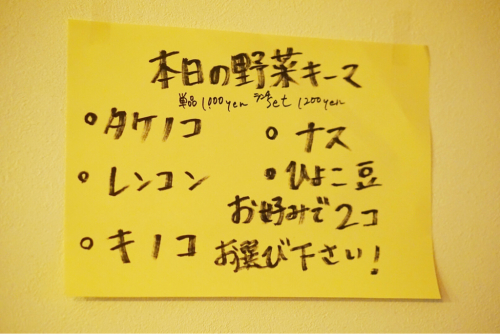 本日の野菜キーマ
単品 1,000yen ランチset 1200yen
○タケノコ ○ナス
○レンコン ○ひよこ豆
お好みで2コ
○キノコ お選び下さい!